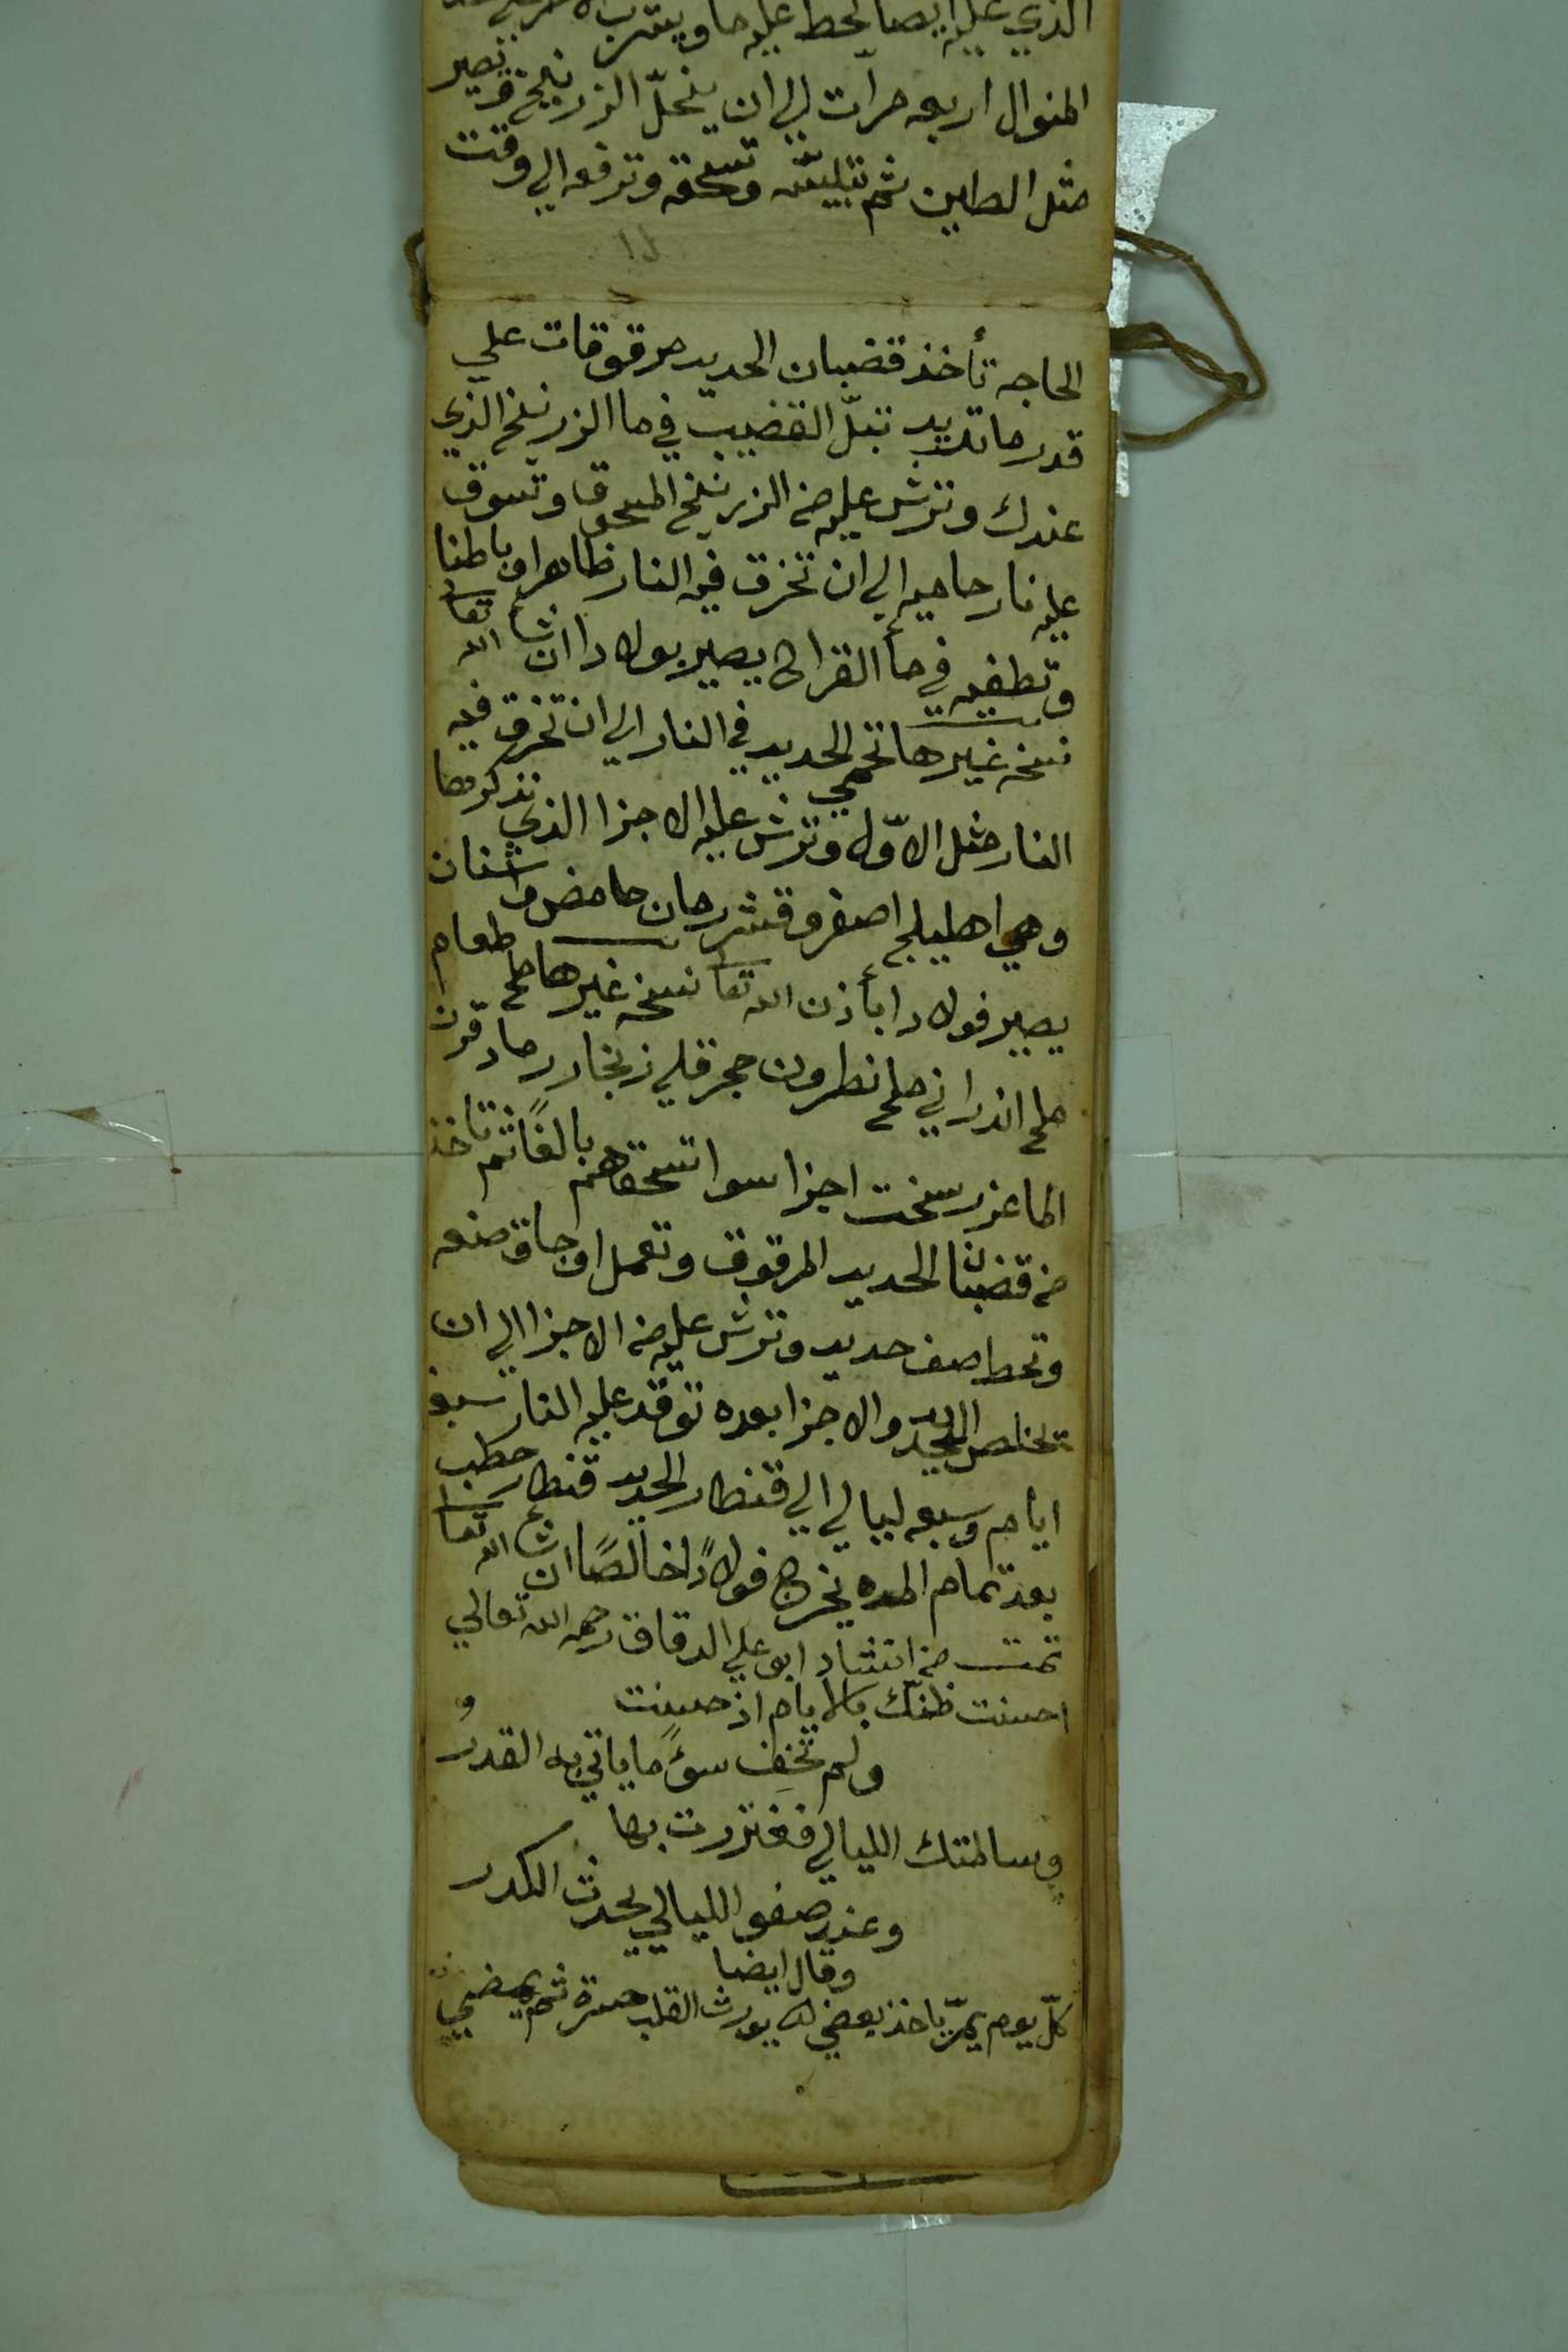 الذي عليه ايضا تحط عليه ما ويشرب
المنوال اربعه مرات الي ان ينحلّ الزرنيخ وتصير
مثل الطين ثم تيبسّه وتسحقه وترفعه الي وقت
الحاجه تأخذ قضبان الحديد مرقوقات علي
قدر ما تريد تبلّ القضيب في ما الزرنيخ الذي
عندك وترش عليه من الزرنيخ المسحوق وتسوق
عليه نار حاميه الي ان تخرق فيه النار ظاهرا وباطنا
وتطفيه في مأ القراح يصير بولادا ان شاء الله تعا
نسخه غيرها تحمي الحديد في النار الي ان تخرق فيه
النار مثل الاوّل وترش عليه الاجزا الذي نذكرها
وهي اهليلج اصفر وقشر رمان حامض واشنان
يصير فولادا بأذن الله تعا نسخه غيرها ملح طعام
ملح اندراني ملح نطرون حجر قلي زنجار رماد قرن
الماعز رسخت اجزا سوا تسحقهم بالغًا ثم تاخذ
من قضبان الحديد المرقوق وتعمل اوجاق صنعه
وتحط صف حديد وترش عليه من الاجزا الي ان
تخلص الحديد والاجزا بعده توقد عليه النار سبع
ايام وسبعه ليالي الي قنطار الحديد قنطار حطب
بعد تمام المده يخرج فولادًا خالصًا ان شاء الله تعا
تمت من انشاد ابو علي الدقاق رحمه الله تعالي
احسنت ظنك بالايام اذ حسنت
ولم تخف سوءً ما ياتي به القدرُ
وسالمتك الليالي فغتررت بها
وعند صفو الليالي يحدث الكدر
وقال ايضا
كلّ يوم يمرّ ياخذ بعضي يورث القلب حسرة ثم يمضي